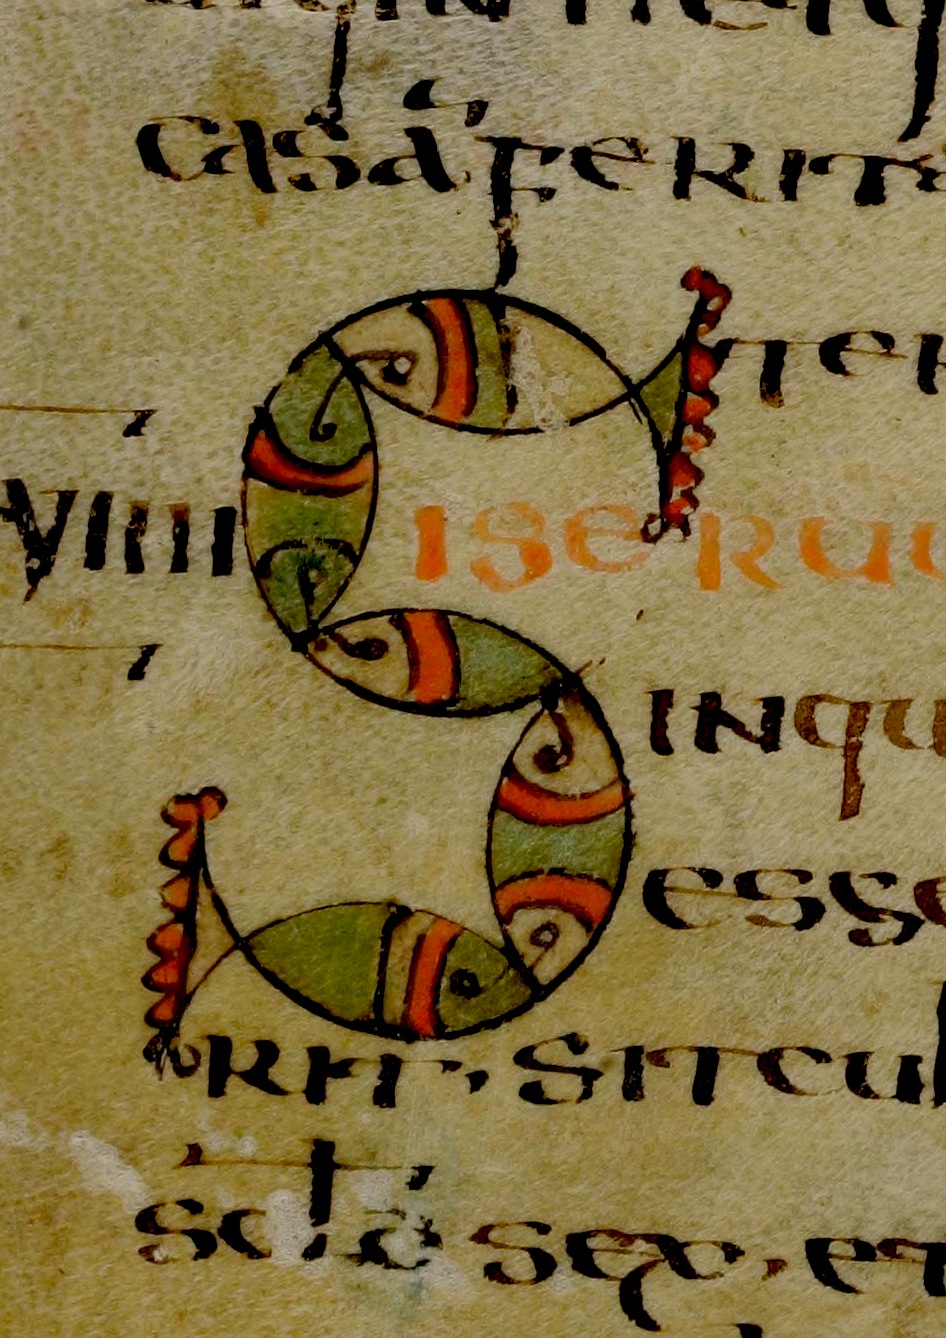 casa ferit
ter
VIIII Siseruu
inqu
esse
rit. sit cul
sex. et